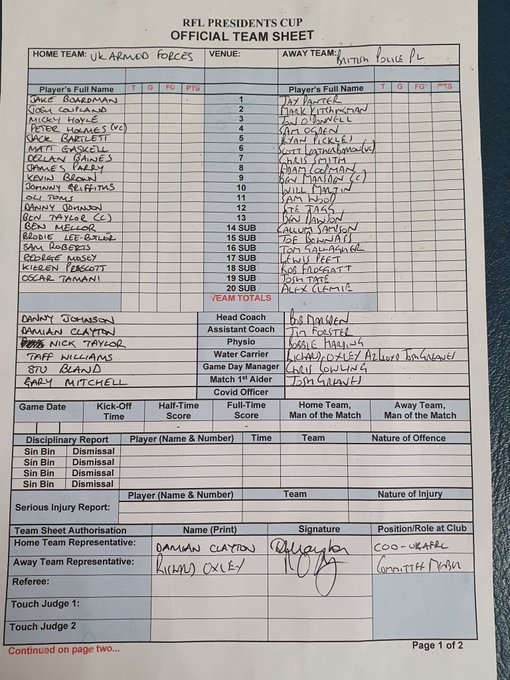 RFL PRESIDENTS CUP
OFFICIAL TEAM SHEET
HOME TEAM: UK ARMED FORCES VENUE: AWAY TEAM: BRITISH POLICE RL
Player's Full Name T G FG PTS Player's Full Name T G FG PTS
JAKE BOARDMAN 1 JAY PANTER
JOSH COUPLAND 2 MARK KITTINGMAN
MICKY HOYLE 3 JON O'DONNELL
PETER HOLMES (VC) 4 SAM OGDEN
JACK BARTLETT 5 RYAN PICKLES
MATT GASKELL 6 SCOTT (VC)
DECLAN GAINES 7 CHRIS SMITH
JAMES PARRY 8 ADAM
KEVIN BROWN 9 BEN MARSDEN (C)
JOHNNY GRIFFITHS 10 WILL MALTIN
OLI TOMS 11 SAM WOOD
DANNY JOHNSON 12 STE TAGG
BEN TAYLOR (C) 13 BEN DAWSON
BEN MELLOR 14 SUB CALLUM SAMSON
BRODIE LEE-BUTLER 15 SUB JOE DOWNASS
SAM ROBERTS 16 SUB TOM GALLAGHER
GEORGE MOSEY 17 SUB LEWIS PEET
KIEREN PRESCOTT 18 SUB ROB FROGGATT
OSCAR TAMANI 19 SUB JOSH TATE
20 SUB ALEX CLEMIE
TEAM TOTALS
DANNY JOHNSON Head Coach BOB MARSDEN
DAMIAN CLAYTON Assistant Coach JIM FORSTER
NICK TAYLOR Physio ROBBIE
TAFF WILLIAMS Water Carrier RICHARD OXLEY TOM GREAVES
STU BLAND Game Day Manager CHRIS COWLING
GARY MITCHELL Match 1st Aider JOSH GREAVES
Covid Officer
Game Date Kick-Off Time Half-Time Score - Full-Time Score - Home Team, Man of the Match Away Team, Man of the Match
Disciplinary Report Player (Name & Number) Time Team Nature of Offence
Sin Bin Dismissal
Sin Bin Dismissal
Sin Bin Dismissal
Sin Bin Dismissal
Player (Name & Number) Team Nature of Injury
Serious Injury Report:
Team Sheet Authorisation Name (Print) Signature Position/Role at Club
Home Team Representative: DAMIAN CLAYTON COO-UKAFRL
Away Team Representative: RICHARD OXLEY COMMITTEE MEMBER
Referee:
Touch Judge 1:
Touch Judge 2
Continued on page two... Page 1 of 2